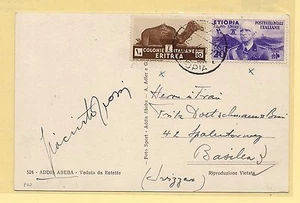 COLONIE ITALIANE
ERITREA
ETIOPIA
POSTE COLONIALI
ITALIANE
20
Herrn & Frau
Fritz
42 Spalenterweg
Basilea
(Svizzera)
Foto Sport - Addis Abeba - A. Adler e G.
524 - ADDIS ABEBA - Veduta da Entotto
Riproduzione Vietata